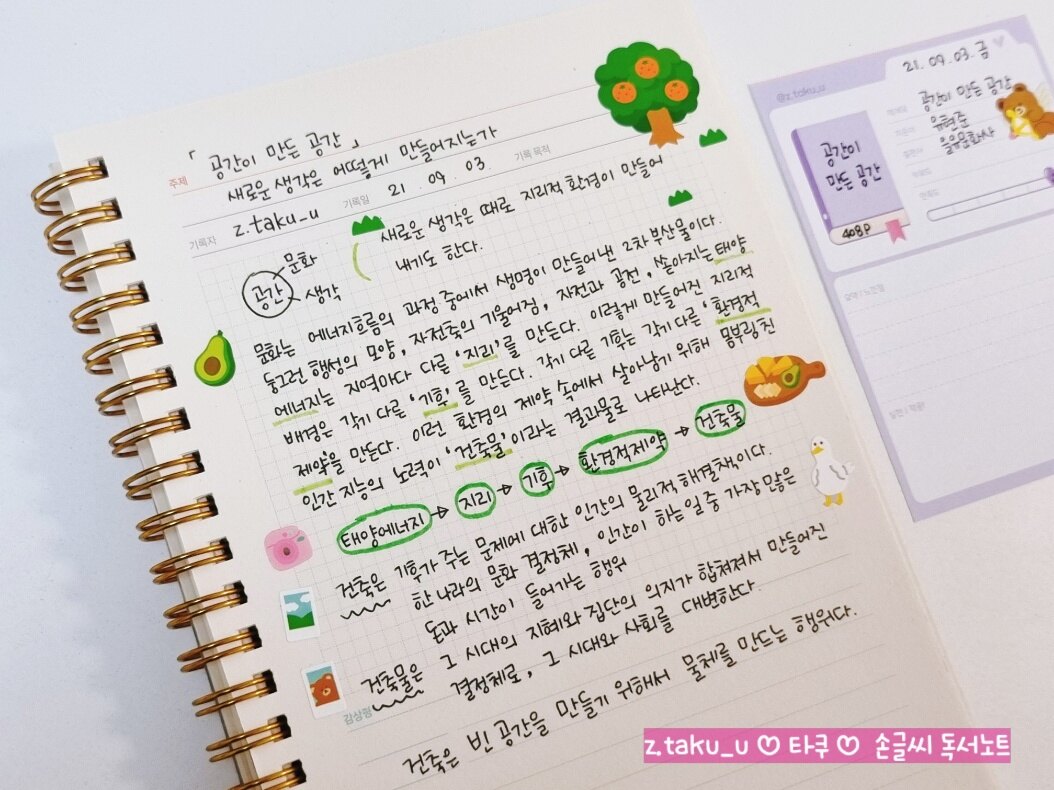 「공간이 만든 공간」
주제
새로운 생각은 어떻게 만들어지는가
기록자 z.taku_u 기록일 21. 09. 03. 기록 목적
새로운 생각은 때로 지리적 환경이 만들어
내기도 한다.
공간 문화
생각
문화는 에너지흐름의 과정 중에서 생명이 만들어낸 2차 부산물이다.
둥그런 행성의 모양, 자전축의 기울어짐, 자전과 공전, 쏟아지는 태양
에너지는 지역마다 다른 '지리'를 만든다. 이렇게 만들어진 지리적
배경은 각기 다른 '기후'를 만든다. 각기 다른 기후는 각기 다른 '환경적
제약'을 만든다. 이런 환경의 제약 속에서 살아남기 위해 몸부림친
인간 지능의 노력이 '건축물'이라는 결과물로 나타난다.
태양에너지 → 지리 → 기후 → 환경적제약 → 건축물
건축은 기후가 주는 문제에 대한 인간의 물리적 해결책이다.
한 나라의 문화 결정체, 인간이 하는 일 중 가장 많은
돈과 시간이 들어가는 행위
건축물은 그 시대의 지혜와 집단의 의지가 합쳐져서 만들어진
결정체로, 그 시대와 사회를 대변한다.
감상평
건축은 빈 공간을 만들기 위해서 물체를 만드는 행위다.
@z.taku_u
21. 09. 03. 금
공간이 만든 공간
유현준
을유문화사
공간이
만든 공간
408P
z.taku_u ♡ 타쿠 ♡ 손글씨 독서노트